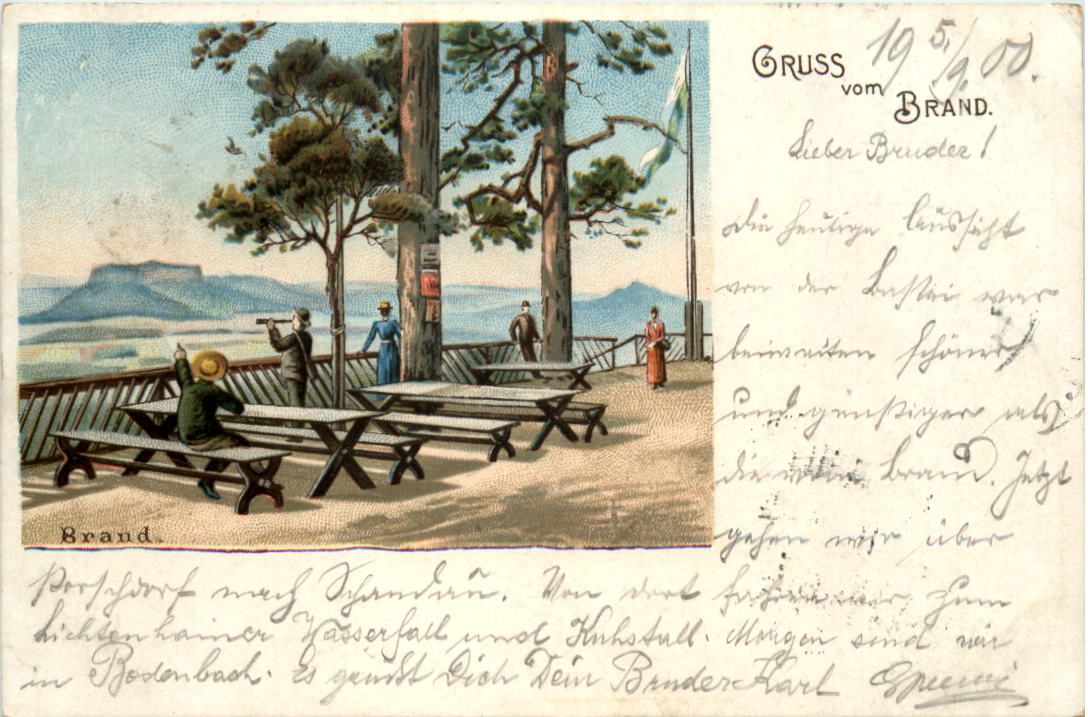 GRUSS 19 5/9 00.
vom
BRAND.
Lieber Bruder!
Die heutige Aussicht
von der Bastei war
beiweiten schöner
und günstiger als
die vom Brand. Jetzt
gehen wir über
Brand.
Porschdorf nach Schandau. Von dort fahren wir zum
Lichtenhainer Wasserfall und Kuhstall. Morgen sind wir
in Bodenbach. Es grüßt Dich Dein Bruder Karl